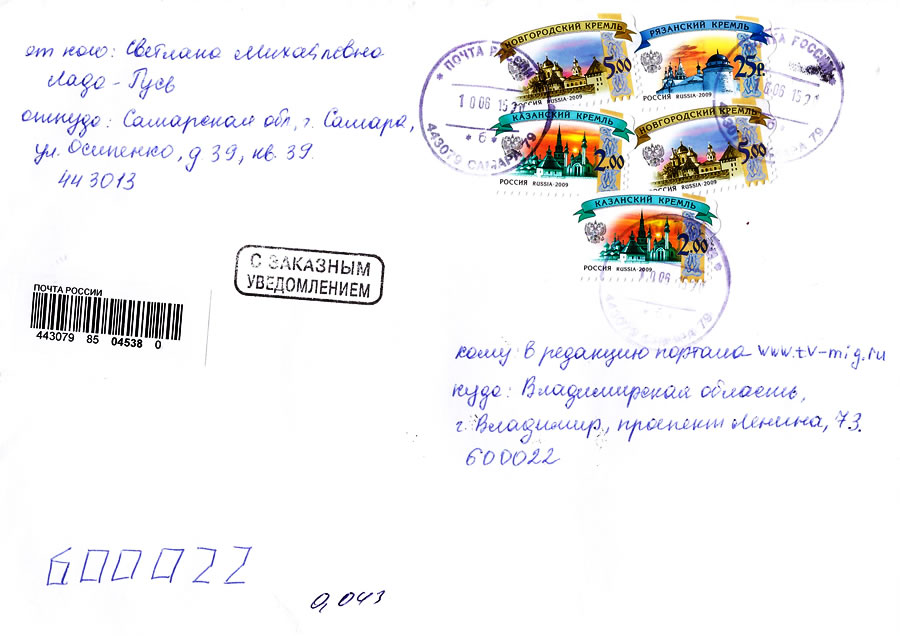 от кого: Светлана Михайловна
Лада-Русь
откуда: Самарская обл, г. Самара,
ул. Осипенко, д 39, кв. 39.
443013
НОВГОРОДСКИЙ КРЕМЛЬ
5.00
РОССИЯ RUSSIA·2009
РЯЗАНСКИЙ КРЕМЛЬ
25р.
РОССИЯ RUSSIA·2009
КАЗАНСКИЙ КРЕМЛЬ
2.00
РОССИЯ RUSSIA·2009
НОВГОРОДСКИЙ КРЕМЛЬ
5.00
РОССИЯ RUSSIA·2009
КАЗАНСКИЙ КРЕМЛЬ
2.00
РОССИЯ RUSSIA·2009
ПОЧТА РОССИИ
443079 САМАРА 79
С ЗАКАЗНЫМ
УВЕДОМЛЕНИЕМ
ПОЧТА РОССИИ
443079 85 04538 0
кому в редакцию портала www.tv-mig.ru
куда: Владимирская область,
г. Владимир, проспект Ленина, 73.
600022
600022
0,043